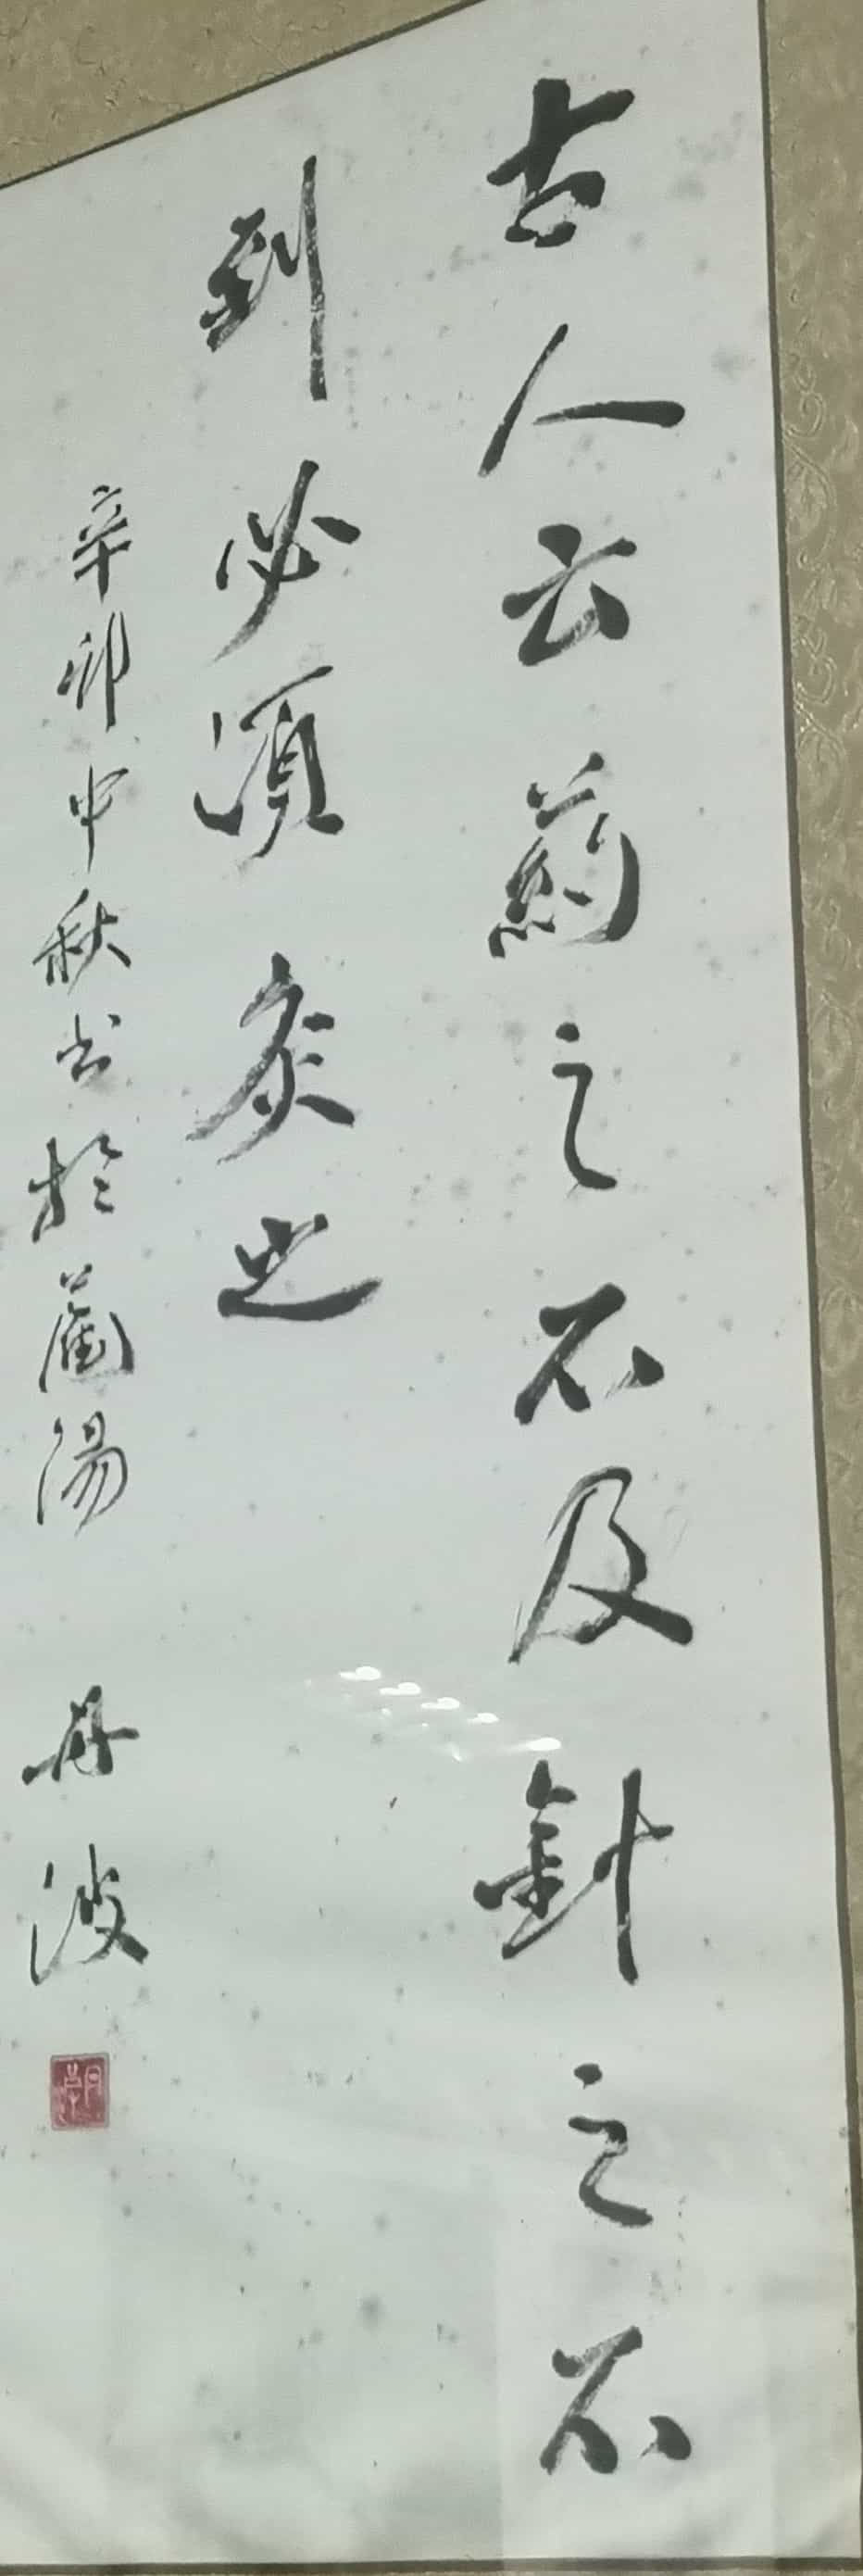 古人云药之不及針之不
到必須灸之
辛卯中秋书於蘭陽 丹波